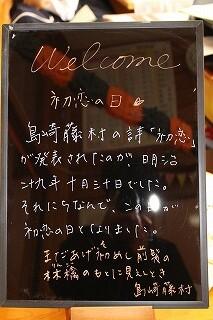 Welcome
初恋の日
島崎藤村の詩「初恋」
が発表されたのが、明治
二十九年十月三十日でした。
それにちなんで、この日が
初恋の日となりました。
まだあげ初めし前髪の
林檎のもとに見えしとき
島崎藤村